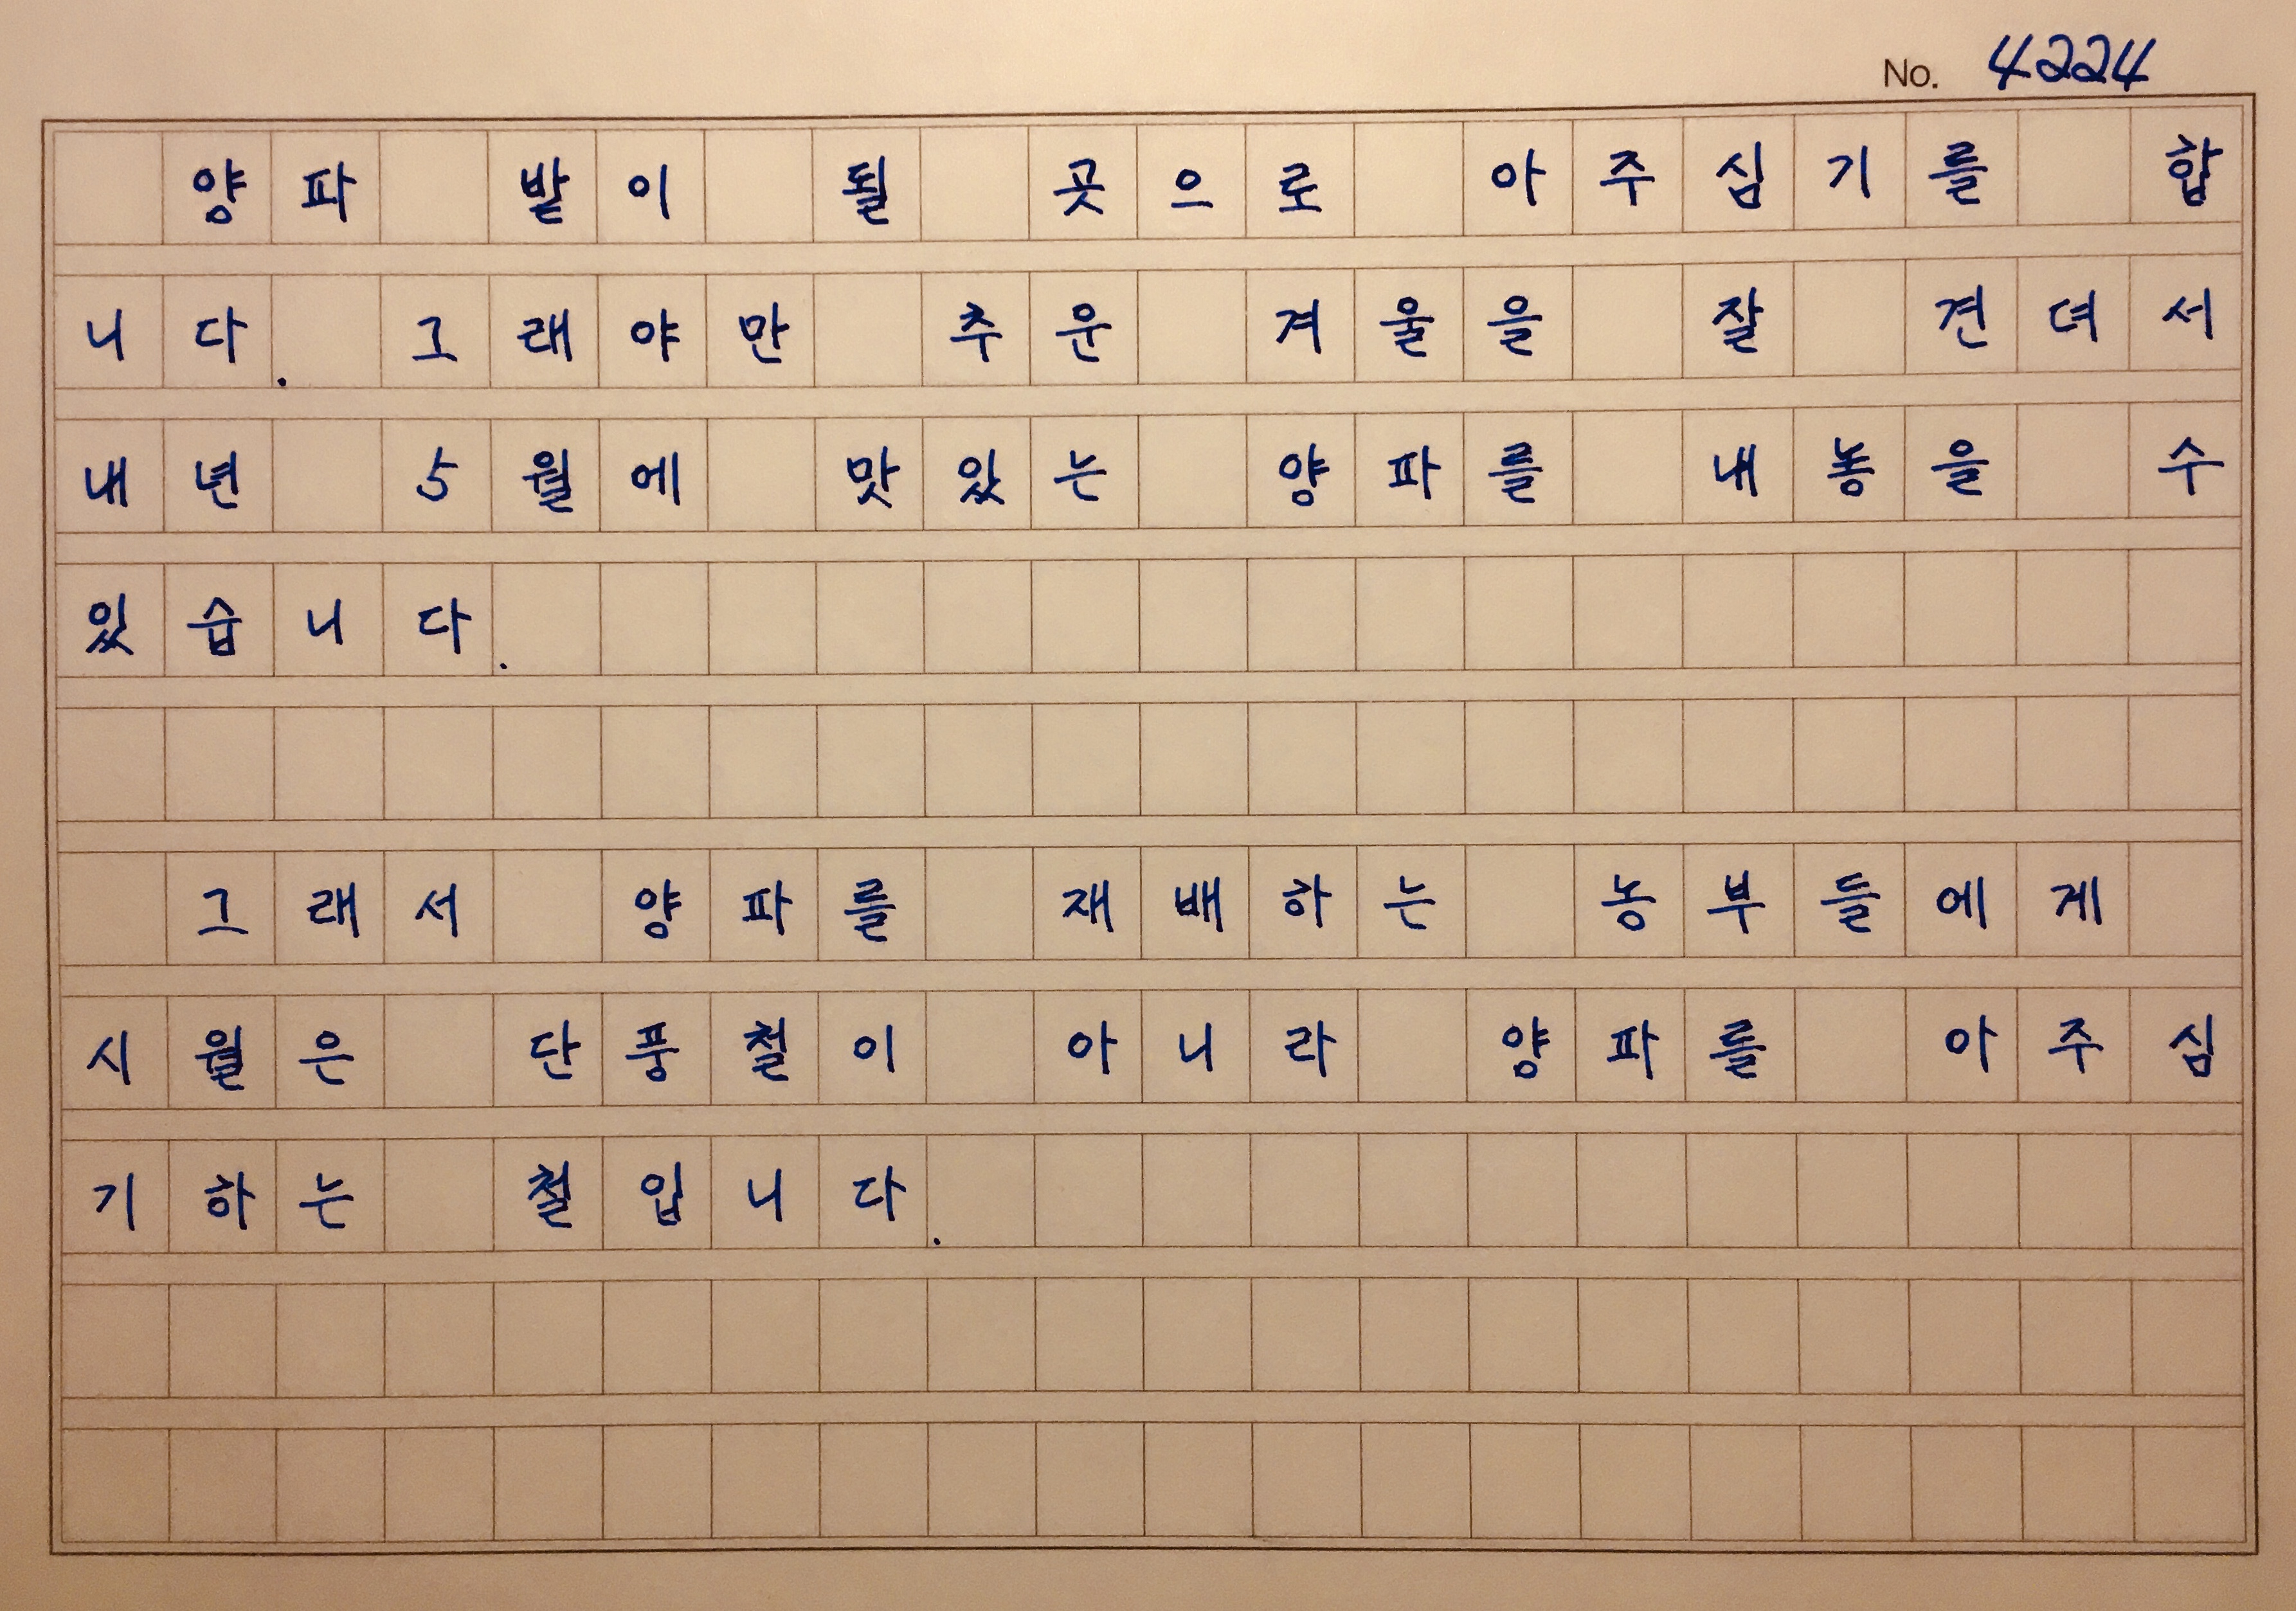 No. 4224
양파 밭이 될 곳으로 아주심기를 합
니다. 그래야만 추운 겨울을 잘 견뎌서
내년 5월에 맛있는 양파를 내놓을 수
있습니다.
그래서 양파를 재배하는 농부들에게
시월은 단풍철이 아니라 양파를 아주심
기하는 철입니다.